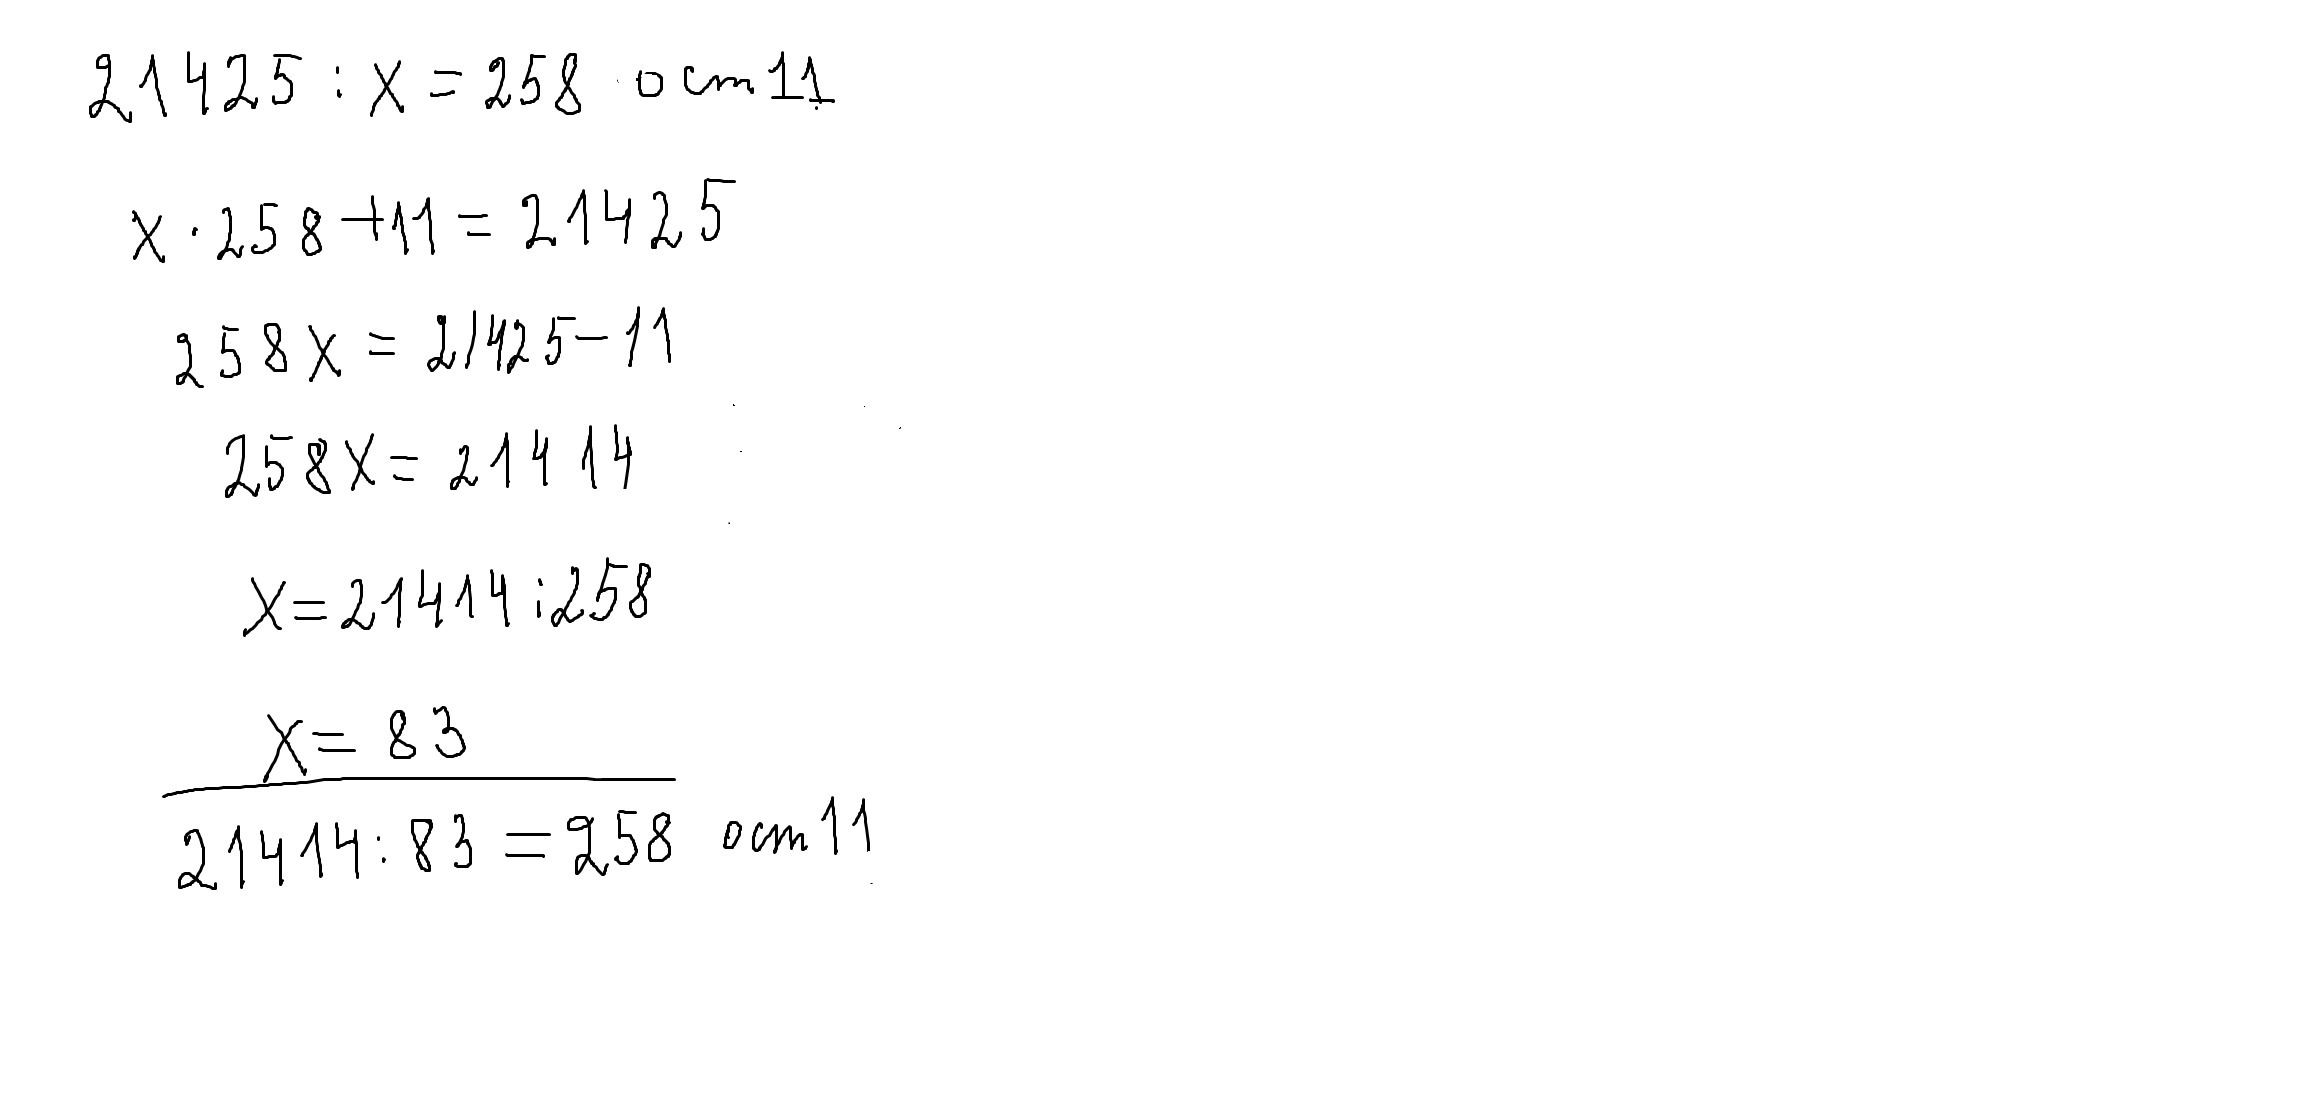 21425 : x = 258 ост 11
x · 258 + 11 = 21425
258x = 21425 - 11
258x = 21414
x = 21414 : 258
x = 83
21414 : 83 = 258 ост 11